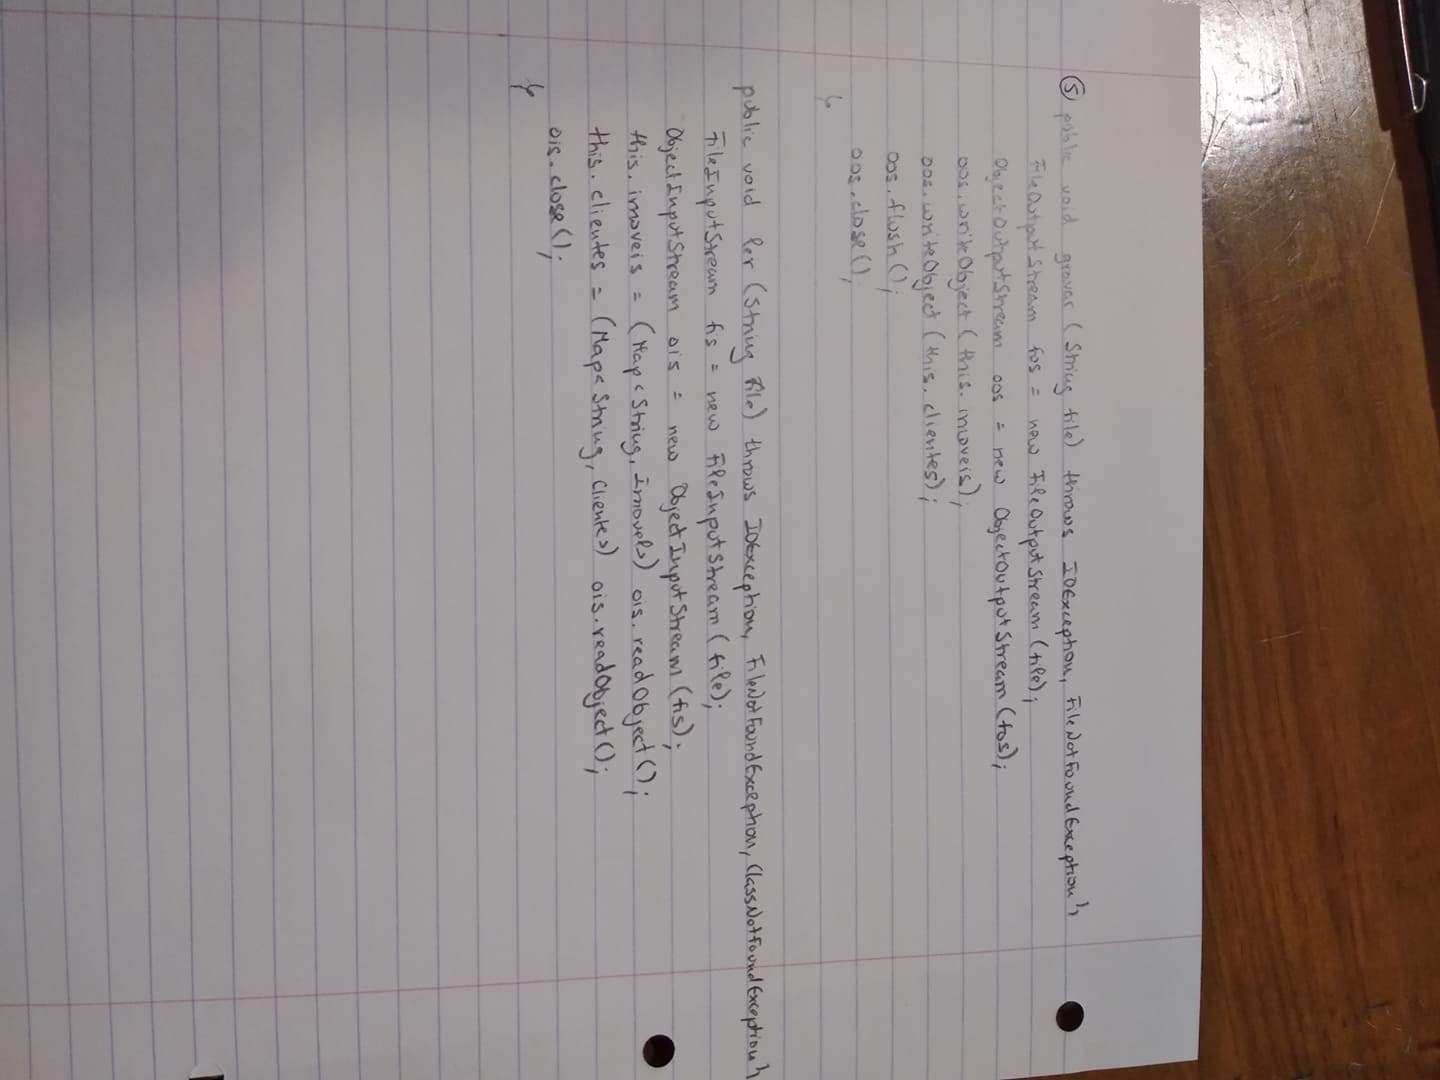 ⑤ public void gravar (String file) throws IOException, FileNotFoundException {
FileOutputStream fos = new FileOutputStream (file);
ObjectOutputStream oos = new ObjectOutputStream (fos);
oos.writeObject (this.imoveis);
oos.writeObject (this.clientes);
oos.flush ();
oos.close ();
}
public void ler (String file) throws IOException, FileNotFoundException, ClassNotFoundException {
FileInputStream fis = new FileInputStream (file);
ObjectInputStream ois = new ObjectInputStream (fis);
this.imoveis = (Map<String, Imovel>) ois.readObject ();
this.clientes = (Map<String, Cliente>) ois.readObject ();
ois.close ();
}